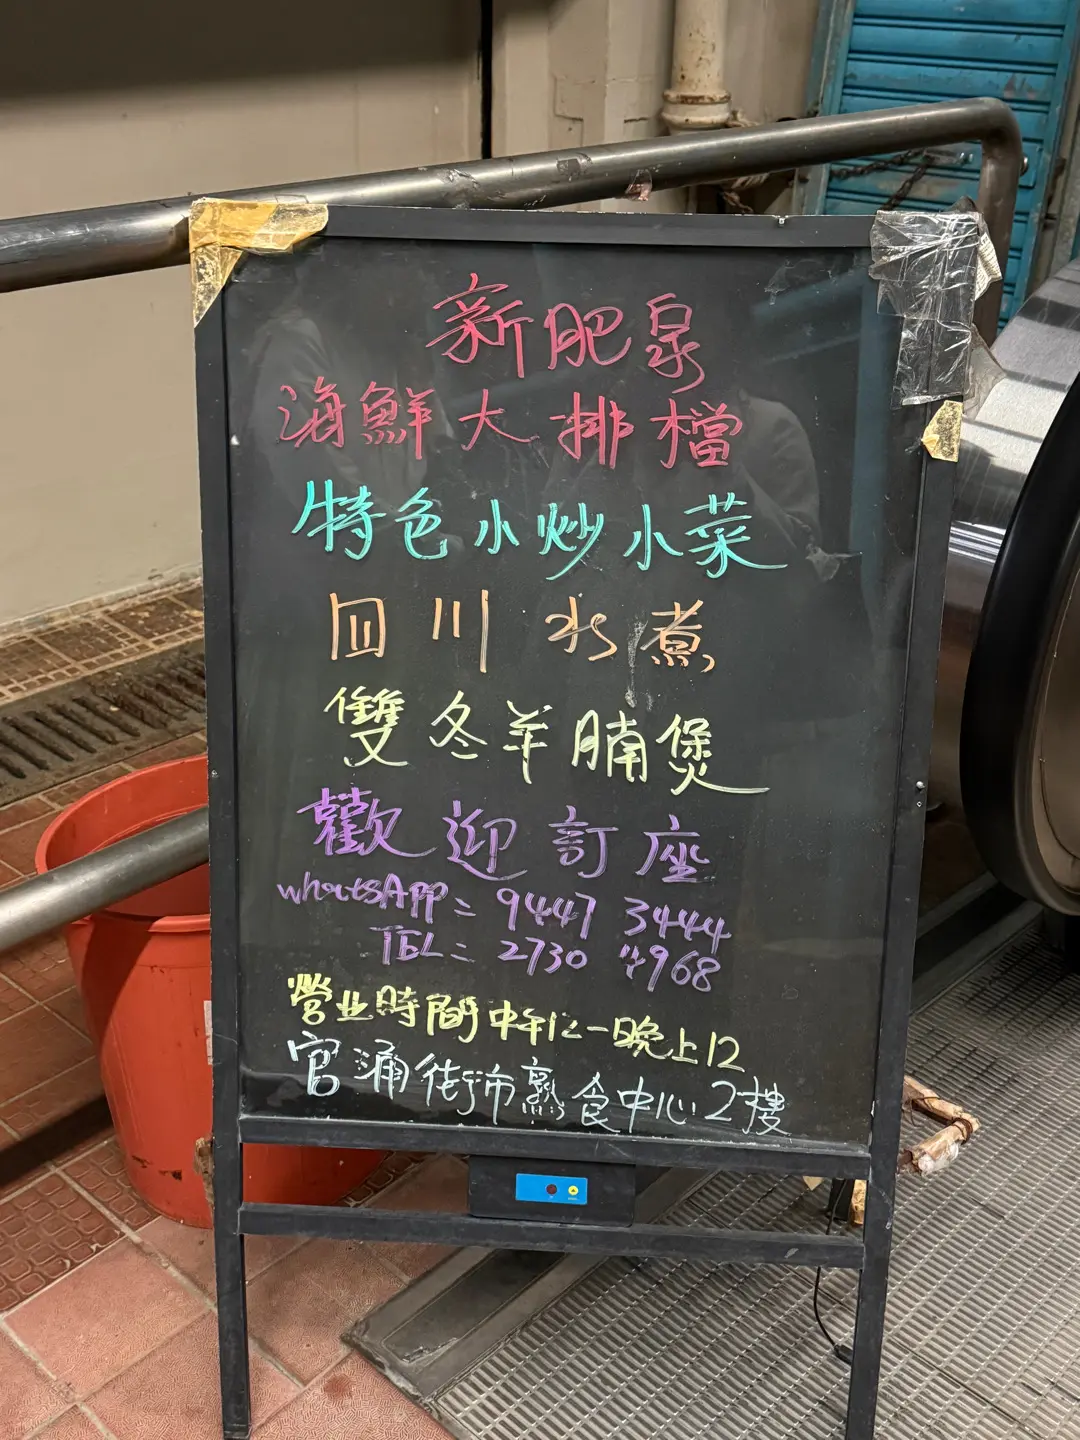 新肥泉
海鮮大排檔
特色小炒小菜
四川水煮
雙冬羊腩煲
歡迎訂座
whatsAPP= 9447 3444
TEL= 2730 4968
營业時間中午12一晚上12
官涌街市熟食中心2樓